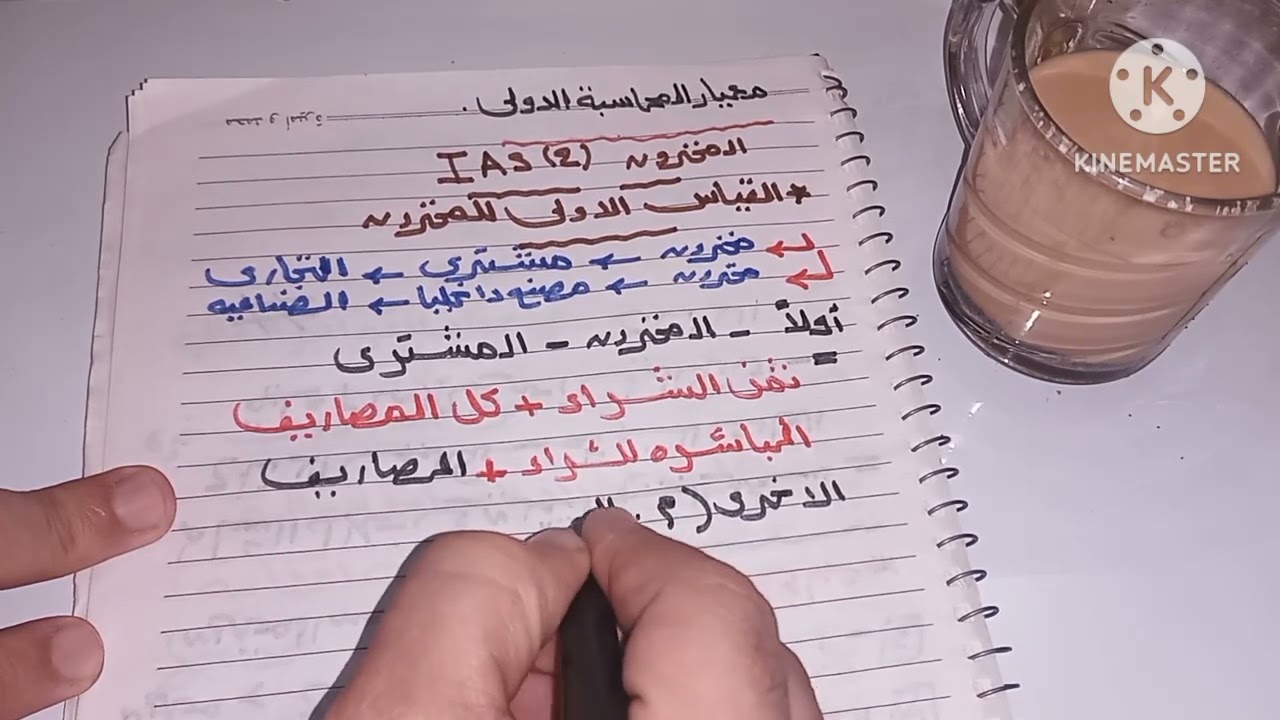 معيار المحاسبة الدولى .
المخزون IAS (2)
* القياس الاولى للمخزون
مخزون ← مشتري ← التجارى
مخزون ← مصنع داخليا ← الصناعيه
أولاً - المخزون - المشترى
ثمن الشراء + كل المصاريف
المباشره للشراء + المصاريف
الاخرى (م . ال
KINEMASTER